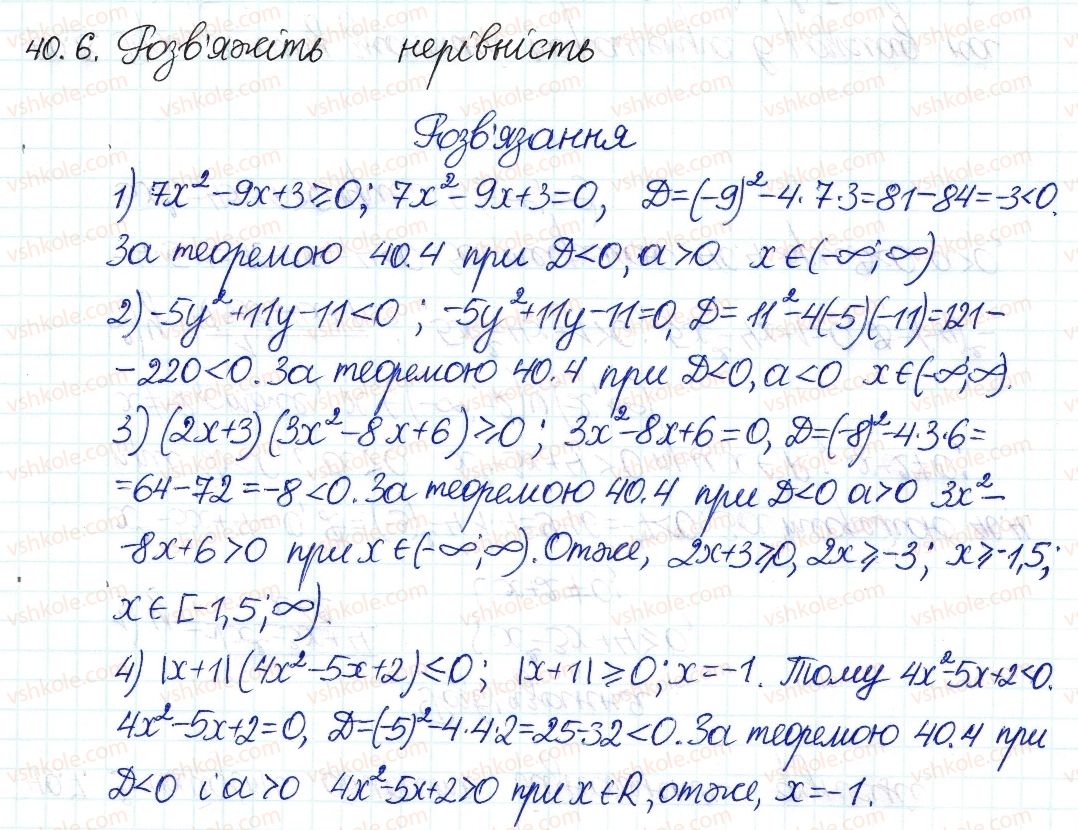 40.6. Розв'яжіть нерівність
Розв'язання
1) 7x² - 9x + 3 ≥ 0; 7x² - 9x + 3 = 0, D = (-9)² - 4·7·3 = 81 - 84 = -3 < 0.
За теоремою 40.4 при D < 0, a > 0 x ∈ (-∞; ∞)
2) -5y² + 11y - 11 < 0; -5y² + 11y - 11 = 0, D = 11² - 4(-5)(-11) = 121 -
- 220 < 0. За теоремою 40.4 при D < 0, a < 0 x ∈ (-∞; ∞).
3) (2x+3)(3x² - 8x + 6) ≥ 0; 3x² - 8x + 6 = 0, D = (-8)² - 4·3·6 =
= 64 - 72 = -8 < 0. За теоремою 40.4 при D < 0 a > 0 3x² -
- 8x + 6 > 0 при x ∈ (-∞; ∞). Отже, 2x + 3 ≥ 0, 2x ≥ -3; x ≥ -1,5;
x ∈ [-1,5; ∞).
4) |x+1|(4x² - 5x + 2) ≤ 0; |x+1| ≥ 0; x = -1. Тому 4x² - 5x + 2 < 0.
4x² - 5x + 2 = 0, D = (-5)² - 4·4·2 = 25 - 32 < 0. За теоремою 40.4 при
D < 0 і a > 0 4x² - 5x + 2 > 0 при x ∈ R, отже, x = -1.
vshkole.com